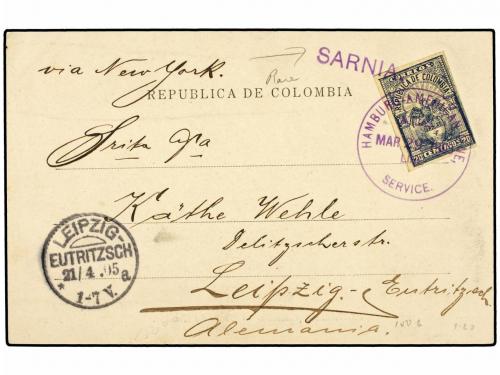 via New York.
Rare
SARNIA
REPUBLICA DE COLOMBIA
REPUBLICA DE COLOMBIA
HAMBURG AMERICAN LINE
MAR
SERVICE.
20 20
Srita
Käthe Wehle
Delitzscherstr.
Leipzig-Eutritzsch
Alemania.
LEIPZIG-
EUTRITZSCH
21/4.05
* 1-7V. a